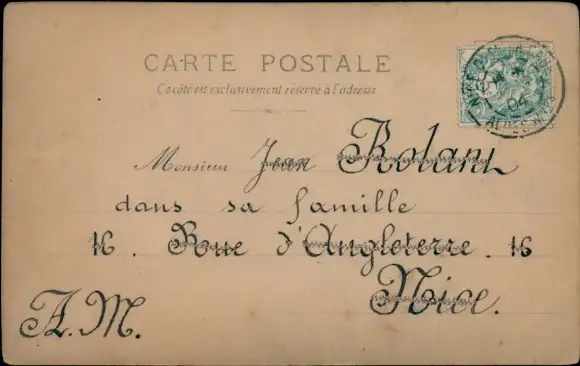 CARTE POSTALE
Ce côté est exclusivement réservé à l'adresse
Monsieur Jean Roland
dans sa famille
16. Rue d'Angleterre. 16
Nice.
A.M.
04